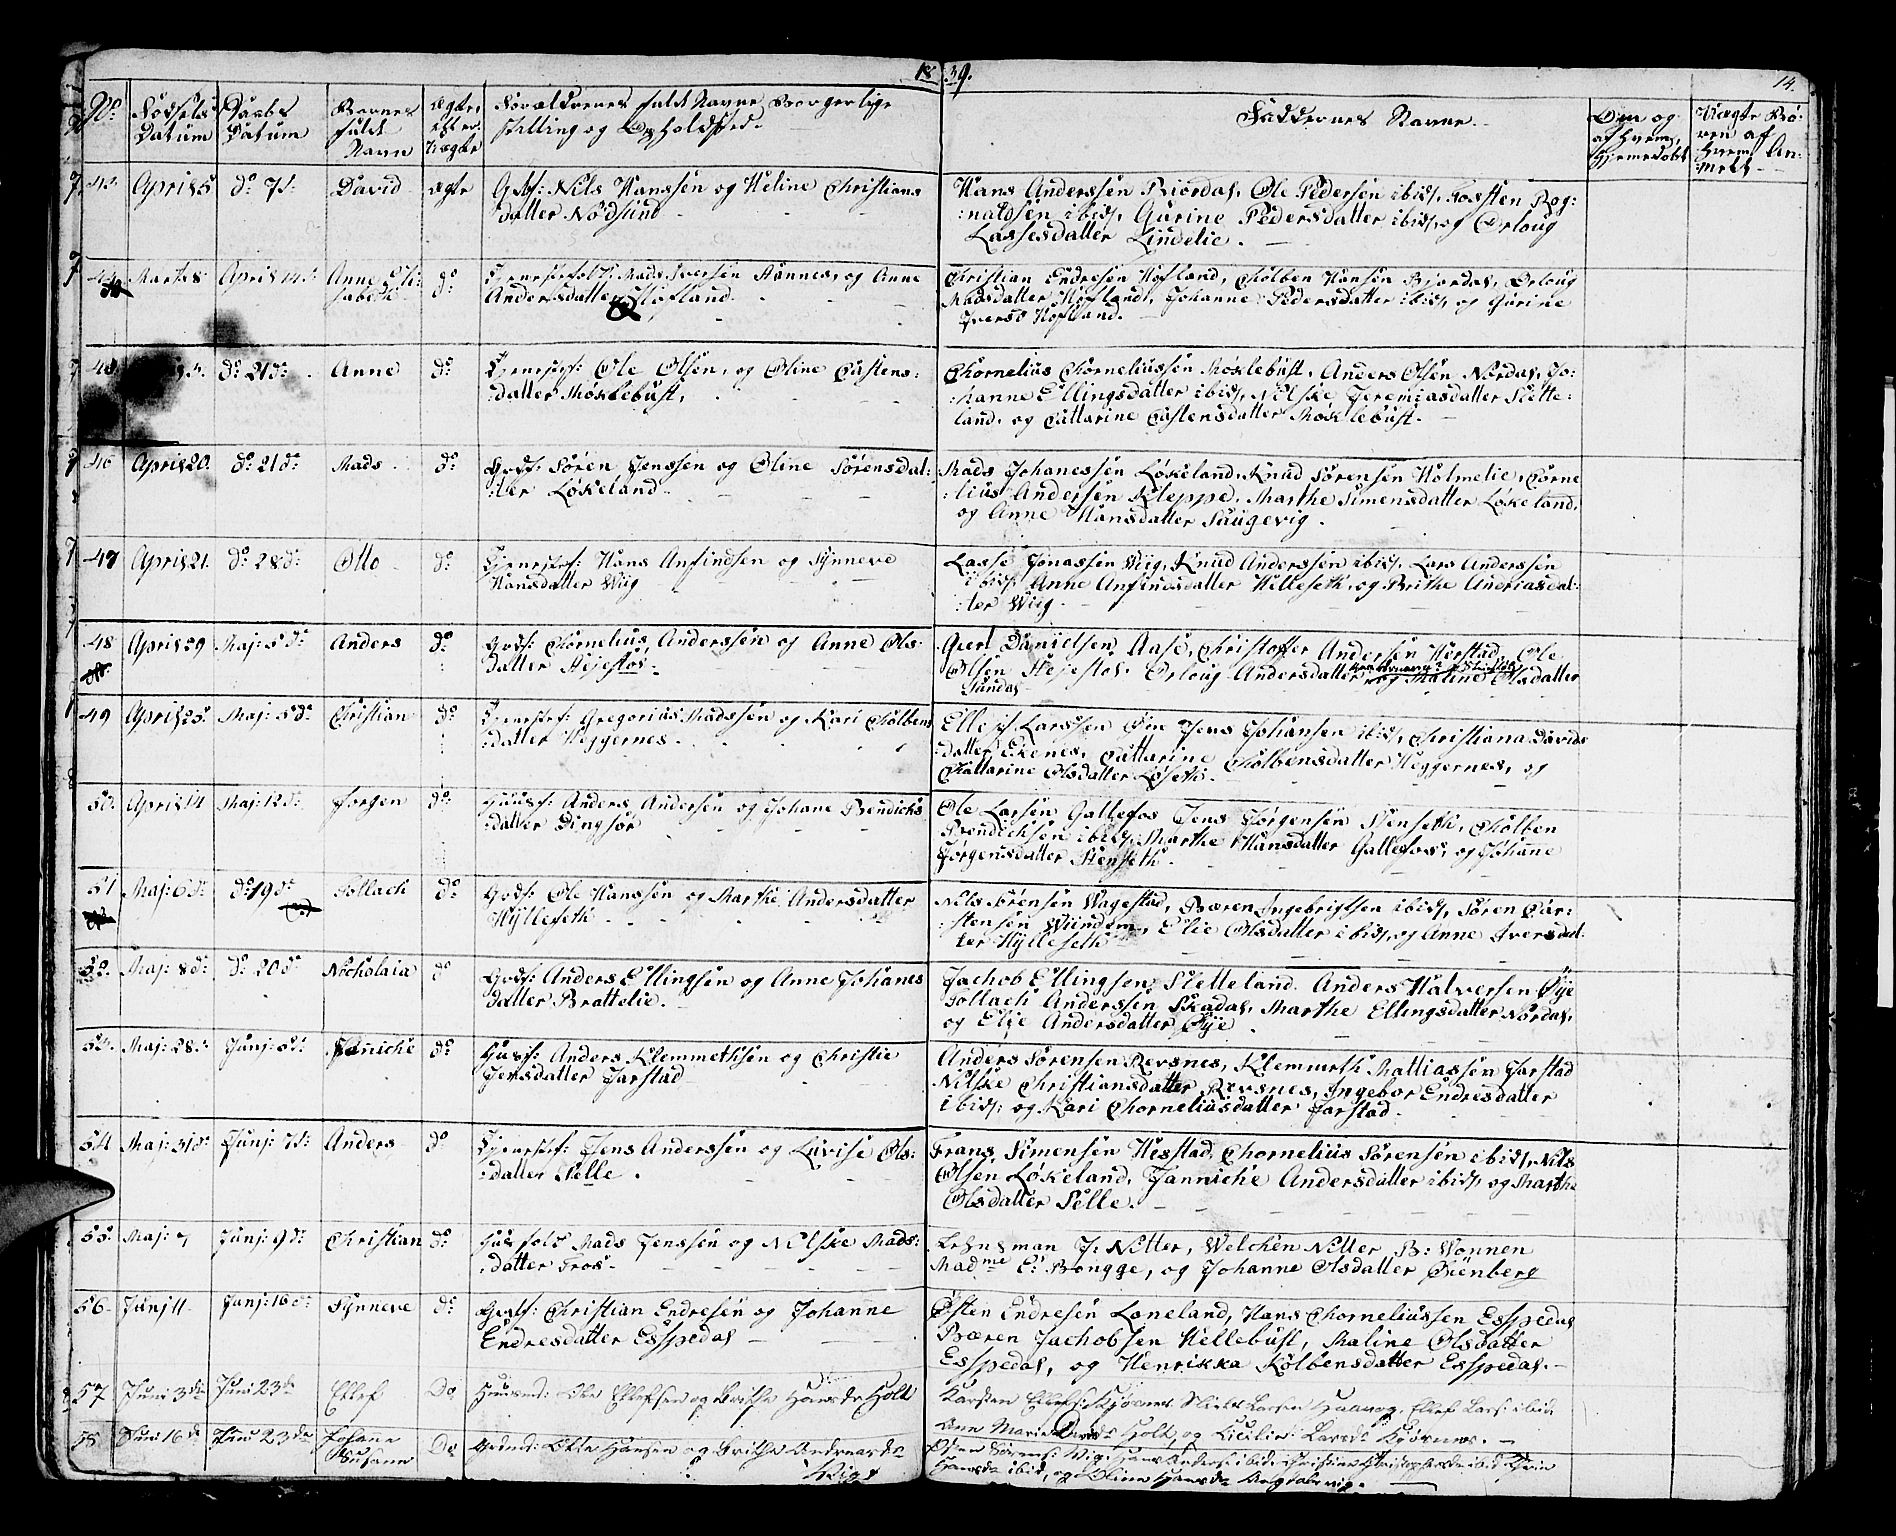 18 39. 14.
No. Fødsels Datum Daabs Datum Barnets fulde Navn Ægte eller Uægte Forældrenes fulde Navne Borgerlige Stilling og Opholdsted. Faddernes Navne. Om og af hvem hjemedøbt Uægte Bø- ren af hvem An- meldt
April 5 do 7de David ægte Gbf: Nils Hanssen og Heline Christians
datter Nödsund
Hans Anderssen Biordal, Ole Pedersen ibid, Tosten Rog-
naldsen ibid, Gurine Pedersdatter ibid, og Orloug
Lassesdatter Lindelie.
44 Marts 8 April 14de Anne Eli-
sabeth do Tjenestefolk: Mads Iversen Hønnes, og Anne
Andersdatter Hofland.
Christian Endresen Hofland, Cholben Hansen Biordal, Orloug
Madsdatter Hofland, Johanne Pedersdatter ibid, og Gurine
Iversd Hofland.
45 do 21de Anne do Tjenestef: Ole Olsen, og Oline Castens-
datter Møklebust,
Chornelius Chorneliussen Møklebust, Anders Olsen Nordal, Jo-
hanne Ellingsdatter ibid, Nilske Jeremiasdatter Slette-
land, og Cattarine Castensdatter Møklebust.
46 April 20. do 21de Mads do Gbdf: Sören Jenssen og Oline Sörensdat-
ter Løkeland
Mads Johanessen Løkeland, Knud Sörensen Holmelie, Corne
lius Andersen Kleppe, Marthe Simensdatter Løkeland,
og Anne Hansdatter Saugevig.
47 April 21. do 28de Otto do Tjenestef: Hans Anfindsen og Synneve
Hansdatter Wiig
Lasse Jonassen Wiig, Knud Anderssen ibid, Lars Anderssen
ibid, Anne Anfindsdatter Hilleseth, og Brithe Andriasdat-
ter Wiig
48 April 29 Maj: 5de Anders do Gbdf: Chornelius Anderssen og Anne Ols-
datter Hejestol.
Geert Danielsen Aase, Christoffer Andersen Herstad, Ole
Olsen Hejestol. Orloug Andersdatter og Maline Olsdatter
Sandal
49 April 25. Maj: 5de Christian do Tjenestef: Gregorius Madssen og Kari Cholbens
datter Heggernes.
Ellef Larssen Öen Jens Johansen ibid, Christiana Davids
datter Ekenes, Cattarine Cholbensdatter Heggernes, og
Chattarine Olsdatter Løseth.
50. April 14 Maj: 12de Jørgen do Huusf: Anders Andersen og Johane Bendichs
datter Dingsör
Ole Larsen Gallefos Jens Jörgensen Stenseth, Cholben
Bendichsen ibid, Marthe Hansdatter Gallefos, og Johane
Jörgensdatter Stenseth.
51 Maj: 6de do 19de Tollach do Gbdf: Ole Hanssen og Marthe Andersdatter
Hylleseth
Nils Sörensen Wagestad, Bæren Ingebrigtsen ibid, Sören Car-
stensen Wiindem, Elie Olsdatter ibid, og Anne Iversdat-
ter Hylleseth
52. Maj: 8de do 20de Nicholaia do Gbdf: Anders Ellingsen og Anne Johanes
datter Brattelie.
Jachob Ellingsen Sletteland. Anders Halversen Öye
Tollach Anderssen Skadal, Marthe Ellingsdatter Nordal,
og Elie Andersdatter Öye.
Maj: 28. Junj: 5de Janiche do Husf: Anders Klemmethsen og Christie
Jensdatter Jarstad
Anders Sörensen Revsnes, Klemmeth Mattiassen Jarstad
Nilske Christiansdatter Revsnes, Ingebor Endresdatter
ibid: og Kari Chorneliusdatter Jarstad.
54 Maj: 31de Junj: 7de Anders do Tjenestef: Jens Anderssen og Lovise Ols-
datter Selle.
Frans Simensen Hestad, Chornelius Sörensen ibid, Nils
Olsen Løkeland, Janniche Andersdatter ibid, og Marthe
Olsdatter Selle.
55. Maj: 7 Junj: 9de Christian do Husfolk Mads Jenssen og Nilske Mads-
datter Fros
Lehnsman J: Nitter, Welchen Nitter B: Wonnen
Madme E: Bongge, og Johanne Olsdatter Öienberg
56. Junj 11 Junj: 16de Synneve do Gbdf: Christian Endresen og Johanne
Endresdatter Esspedal
Østen Endresen Loneland, Hans Chorneliussen Esspedal
Bæren Jachobsen Hellebust, Maline Olsdatter
Esspedal, og Henrikka Kolbensdatter Esspedal.
57 Juni 3de Juni 23de Ellef Do Huusmd: Ole Ellefsen og Brithe Hansdr Holt
Karsten Ellefs: Kjørnes Larsen Ellef Lars: ibid
Ane Marie Holt, og Larsdr Kjørnes.
58 Juni 16de Juni 23de Johane
Susane Do Grdmd: Otte Hansen og Brithe Andreasdr
Wiig
Østen Sörens: Wiig, Hans Anders: ibid
Hansdr ibid, og Oline Hansdr